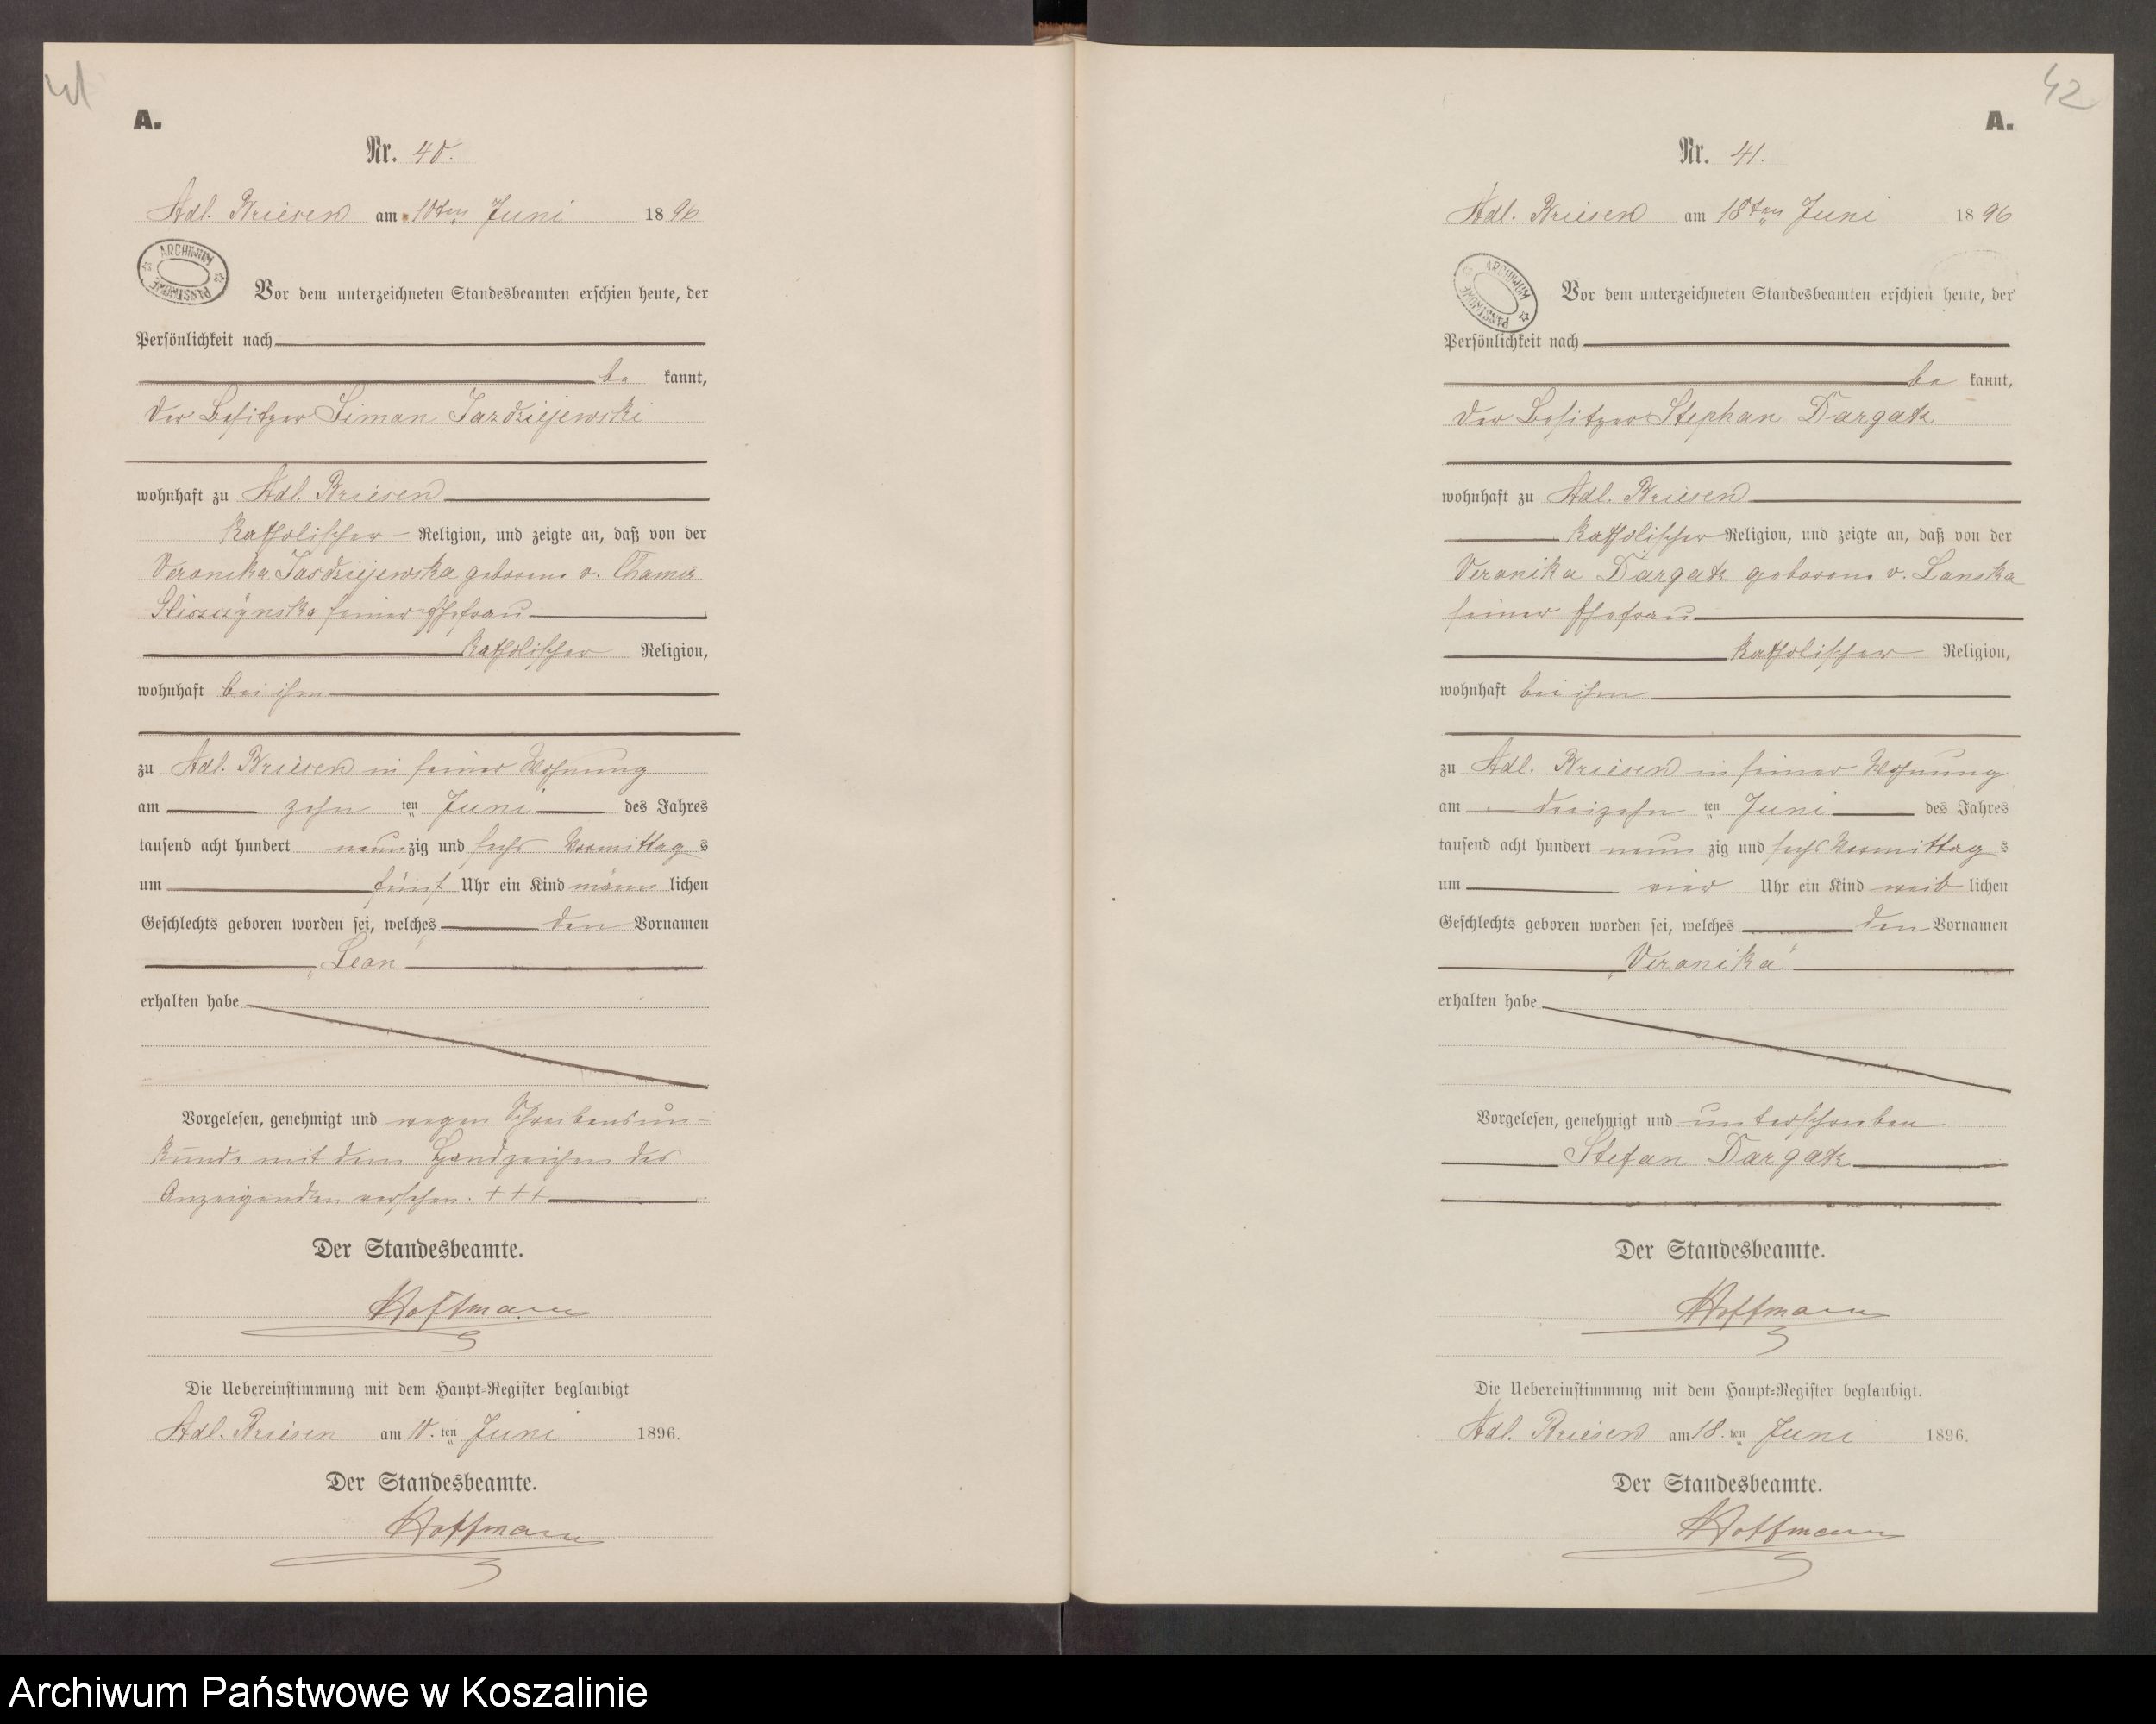 41
A.
Nr. 40.
Adl. Briesen am 10ten Juni 1896
ARCHIWUM PAŃSTWOWE
Vor dem unterzeichneten Standesbeamten erschien heute, der
Persönlichkeit nach
be kannt,
der Besitzer Siman Jazdziejewski
wohnhaft zu Adl. Briesen
katholischer Religion, und zeigte an, daß von der
Veronika Jasdziejewska geborene v. Chamir
Gliszczynska seiner Ehefrau
katholischer Religion,
wohnhaft bei ihm
zu Adl. Briesen in seiner Wohnung
am zehn ten Juni des Jahres
tausend acht hundert neunzig und sechs Vormittag s
um fünf Uhr ein Kind männ lichen
Geschlechts geboren worden sei, welches den Vornamen
„Leon“
erhalten habe
Vorgelesen, genehmigt und wegen Schreibensun-
kunde mit dem Handzeichen des
Anzeigenden versehen. +++
Der Standesbeamte.
Hoffmann
Die Uebereinstimmung mit dem Haupt-Register beglaubigt
Adl. Briesen am 10. ten Juni 1896.
Der Standesbeamte.
Hoffmann
42
A.
Nr. 41.
Adl. Briesen am 18ten Juni 1896
ARCHIWUM PAŃSTWOWE
Vor dem unterzeichneten Standesbeamten erschien heute, der
Persönlichkeit nach
be kannt,
der Besitzer Stephan Dargatz
wohnhaft zu Adl. Briesen
katholischer Religion, und zeigte an, daß von der
Veronika Dargatz geborene v. Lanska
seiner Ehefrau
katholischer Religion,
wohnhaft bei ihm
zu Adl. Briesen in seiner Wohnung
am dreizehn ten Juni des Jahres
tausend acht hundert neun zig und sechs Vormittag s
um vier Uhr ein Kind weib lichen
Geschlechts geboren worden sei, welches den Vornamen
„Veronika“
erhalten habe
Vorgelesen, genehmigt und unterschrieben
Stefan Dargatz
Der Standesbeamte.
Hoffmann
Die Uebereinstimmung mit dem Haupt-Register beglaubigt.
Adl. Briesen am 18. ten Juni 1896.
Der Standesbeamte.
Hoffmann
Archiwum Państwowe w Koszalinie